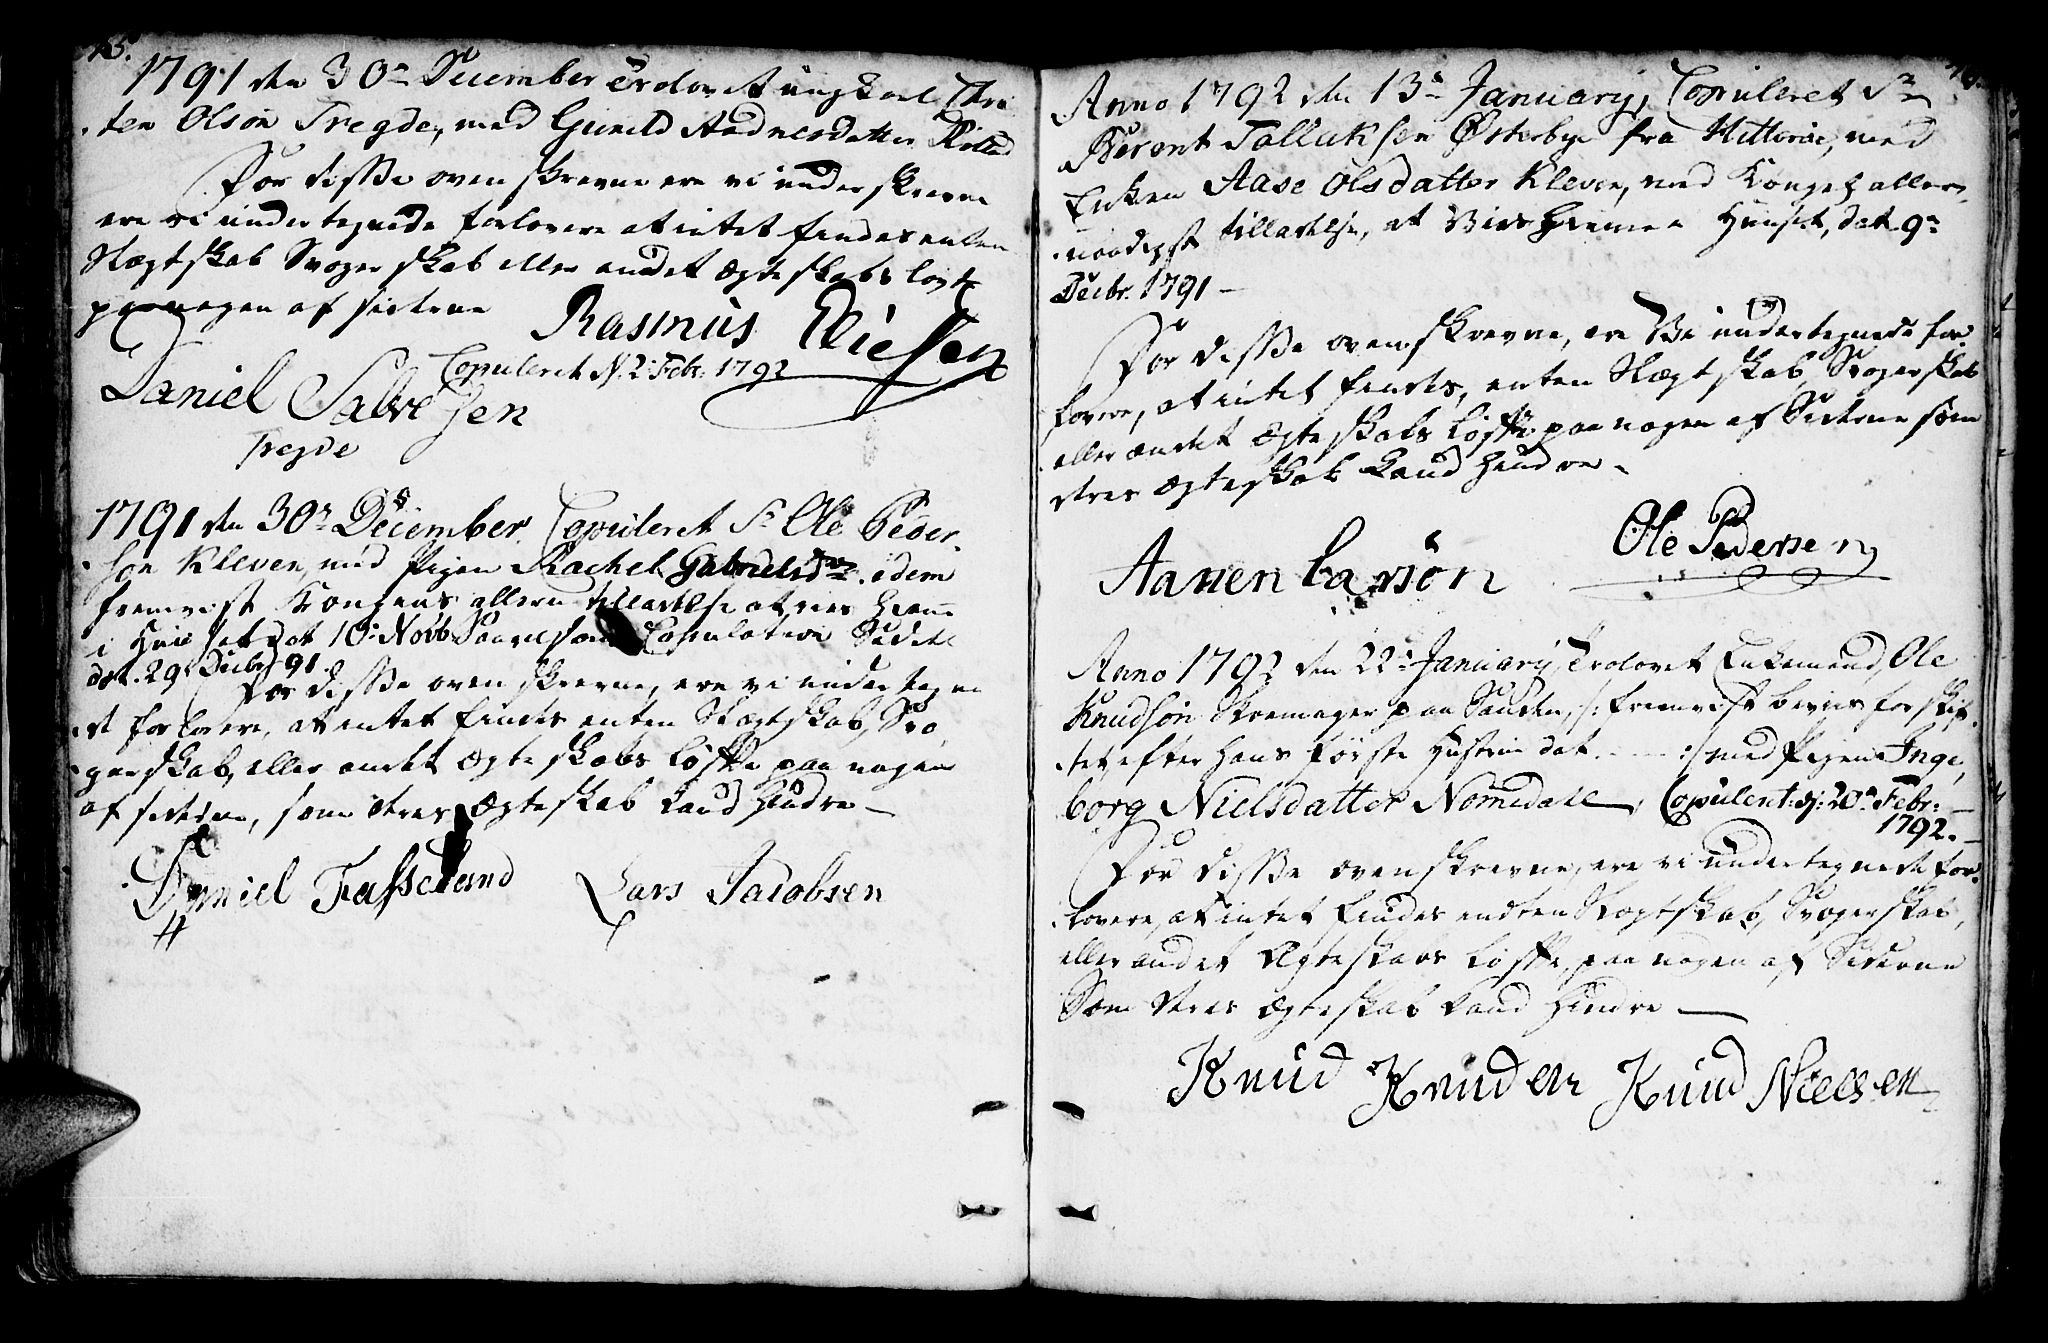 1791 den 30te December Trolovet ungkarl Chri
sten Olsøn Tregde, med Gunild Aadnesdatter
For disse oven skrevne ere vi under skrevne
ere vi undertegnede forlovere at intet findes enten
Slægtskab Svoger skab eller andet Ægteskabs løfte
paa nogen af siderne Rasmus Eliesen
Copuleret d. 2 Febr. 1792
Daniel Salvesen
Tregde
1791 den 30te December Copuleret Sr Ole Peder-
søn Kleven, med Pigen Rachel Gabrielsdr idem
fremvist Kongens allern tilladelse at vies hjemme
i Huuset dat 10 Novb Copulation Sedel
dat. 29 Decbr 91.
For disse oven skrevne, ere vi underteg ne
de forlovere, at intet findes enten Slægtskab, Svo
gerskab, eller andet Ægteskabs løfte paa nogen
af siderne, som deres Ægteskab kand hindre
Daniel Fasseland Lars Jacobsen
Anno 1792 den 13de January, Copuleret Sr
Berent Tollaksen Østerbye fra Hitterøe, med
Enken Aase Olsdatter Kleven, med Kongel aller-
naadigst tilladelse, at Vies hiemme i Huuset, dat. 9de
Decbr. 1791
For disse oven skrevne, ere Vi undertegnede for-
lovere, at intet findes, enten Slægtskab, Svogerskab
eller andet Ægteskabs løfte paa nogen af Siderne som
deres Ægteskab kand hindre
Aanen Larsøn Ole Pedersen
Anno 1792 den 22de January, Trolovet Enkemand, Ole
Knudsøn Skoemager paa Sanden, /: fremvist beviis for skif-
tet efter hans første Hustrue dat. :/ med Pigen Inge-
borg Nielsdatter Nomedahl, Copuleret d: 20de Febr:
1792.
For disse ovenskrevne, ere vi undertegnede for-
lovere, at intet findes endten Slægtskab, Svogerskab,
eller andet Ægteskabs løfte, paa nogen af Siderne
Som deres Ægteskab kand hindre
Knud Knudsen Knud Nielsen